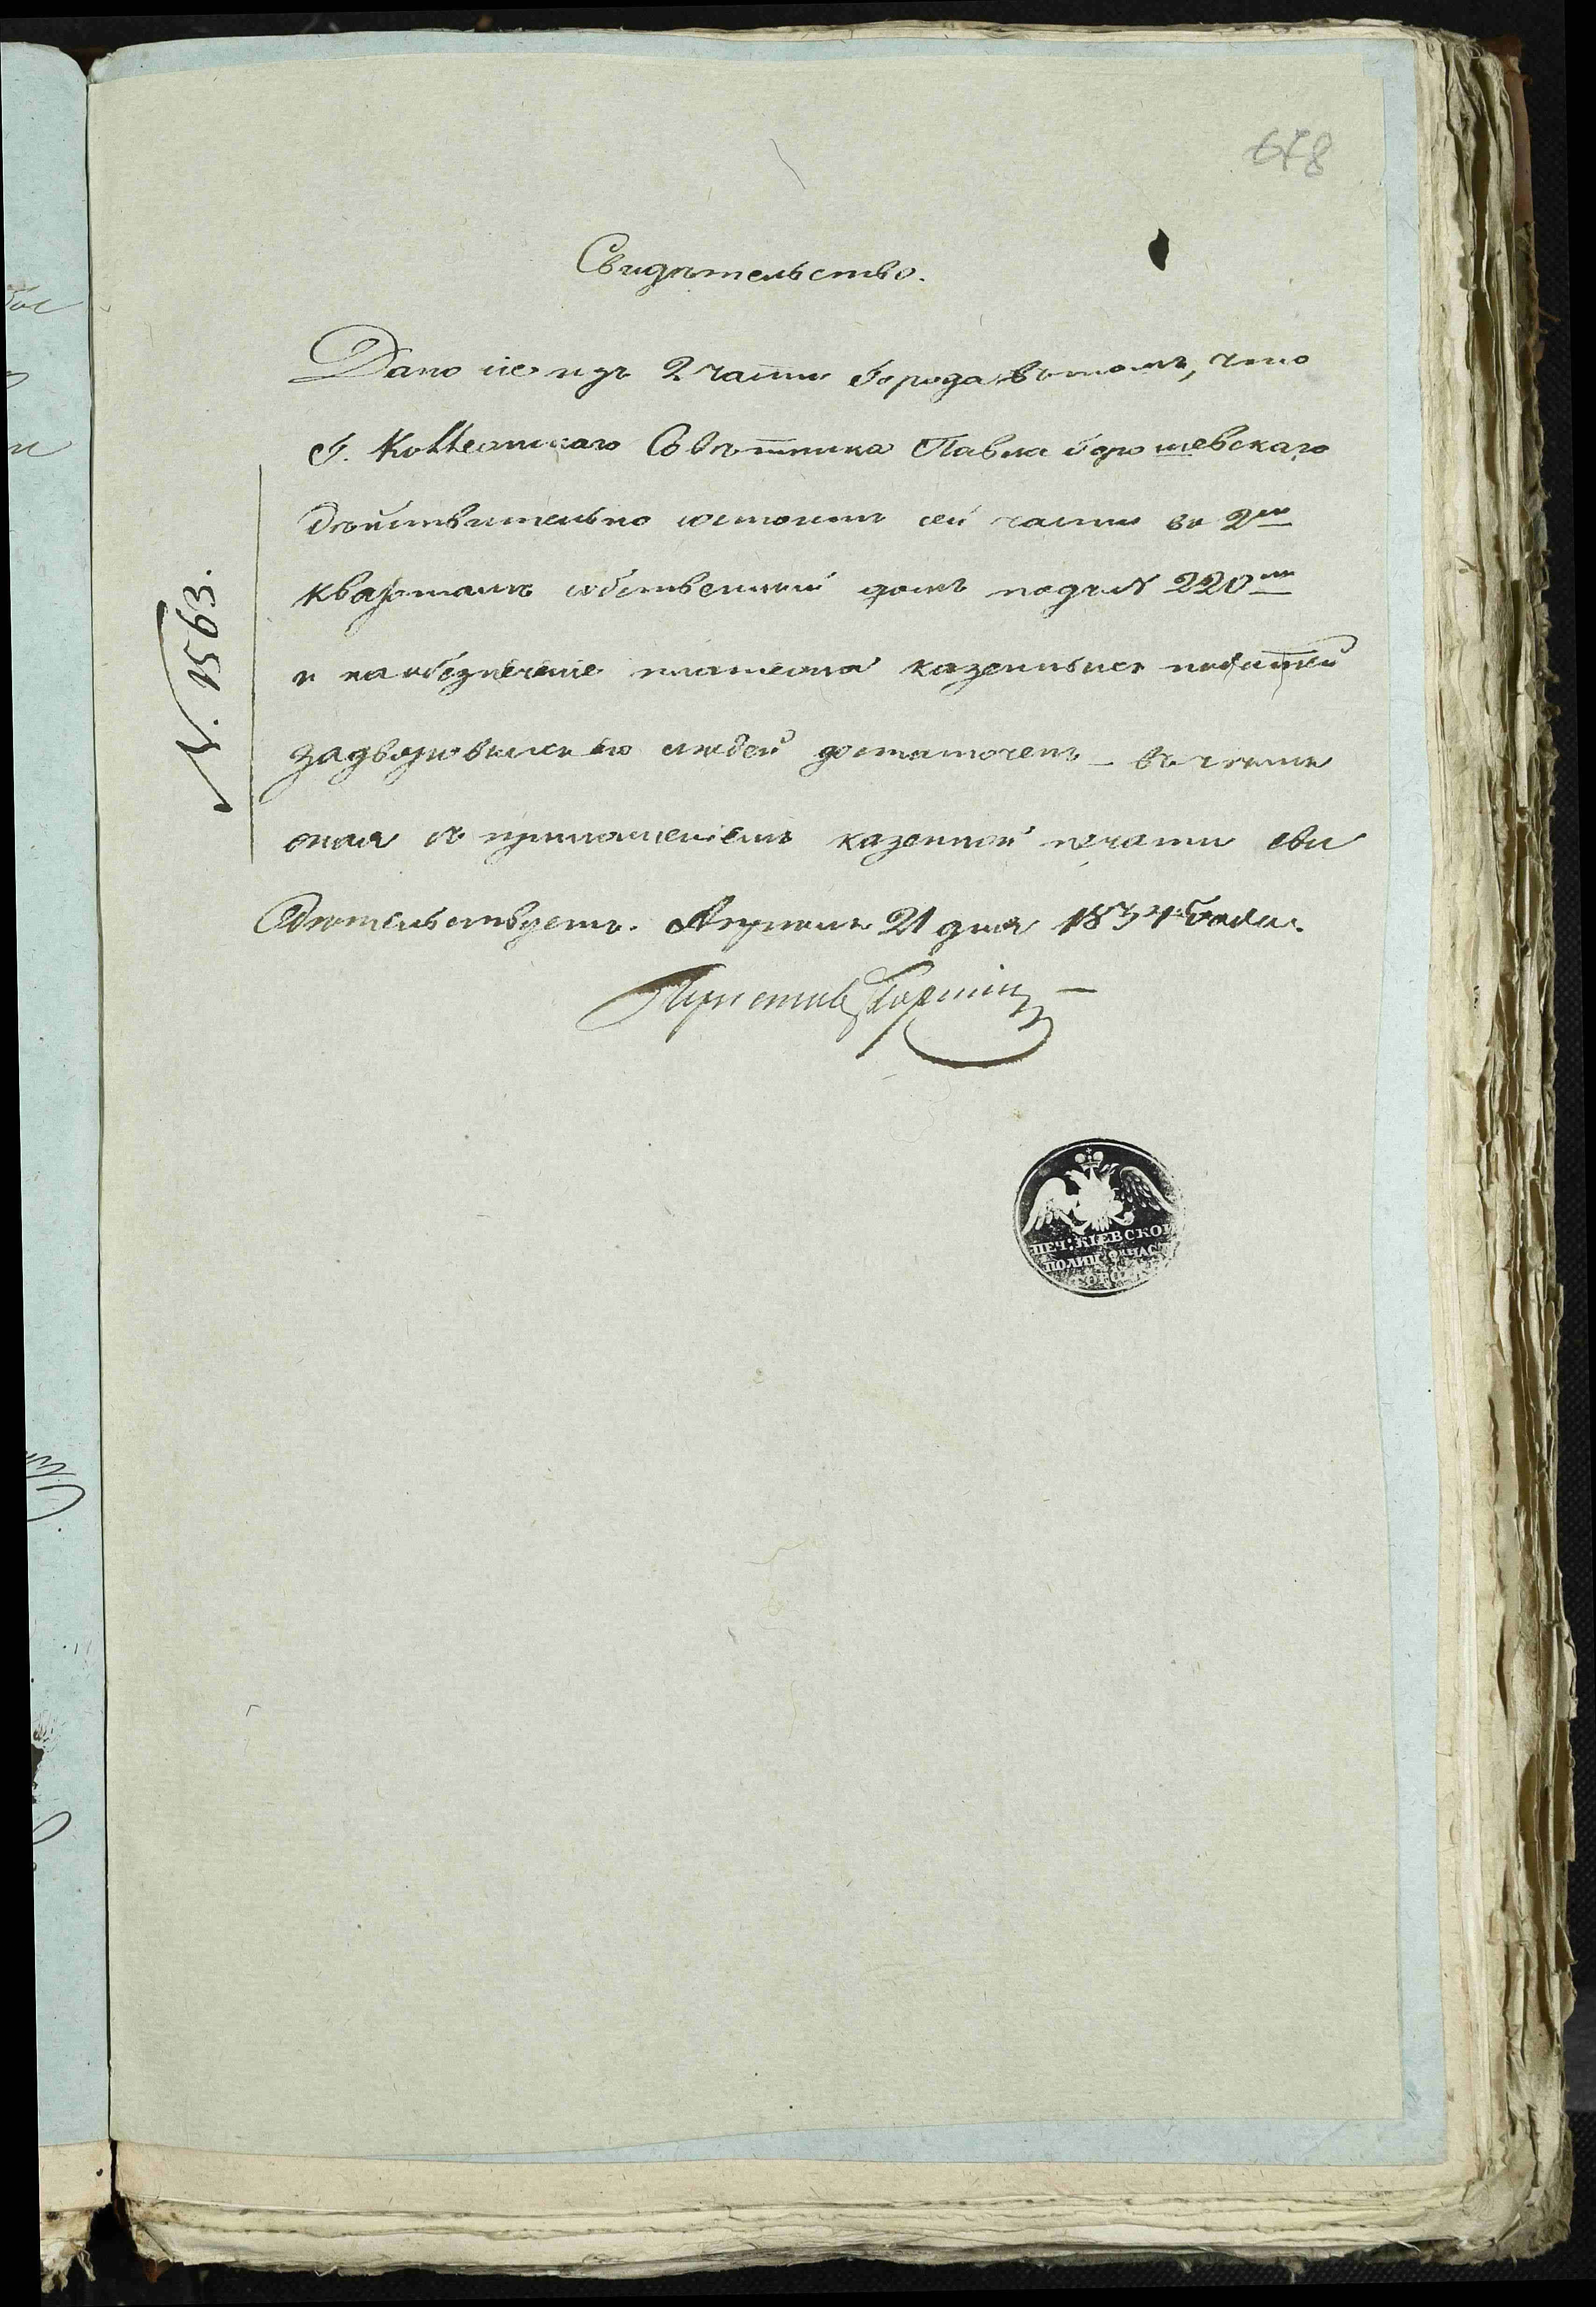 678
Свидѣтельство.
Дано сіе изъ 2 части города въ томъ, что
Г. Коллежскаго Совѣтника Павла Ярошевскаго
действительно состоитъ сей части во 2мъ
кварталѣ собственный домъ подъ N 220мъ
и на обезпеченіе платежа казенныхъ податей
за дворовыхъ его людей достаточенъ – въ чемъ
оная съ приложеніемъ казенной печати сви
дѣтельствуетъ. Апреля 21 дня 1834 года.
Приставъ
N. 1563.
ПЕЧ: КІЕВСКОЙ
ПОЛИЦ: 2й ЧАСТ